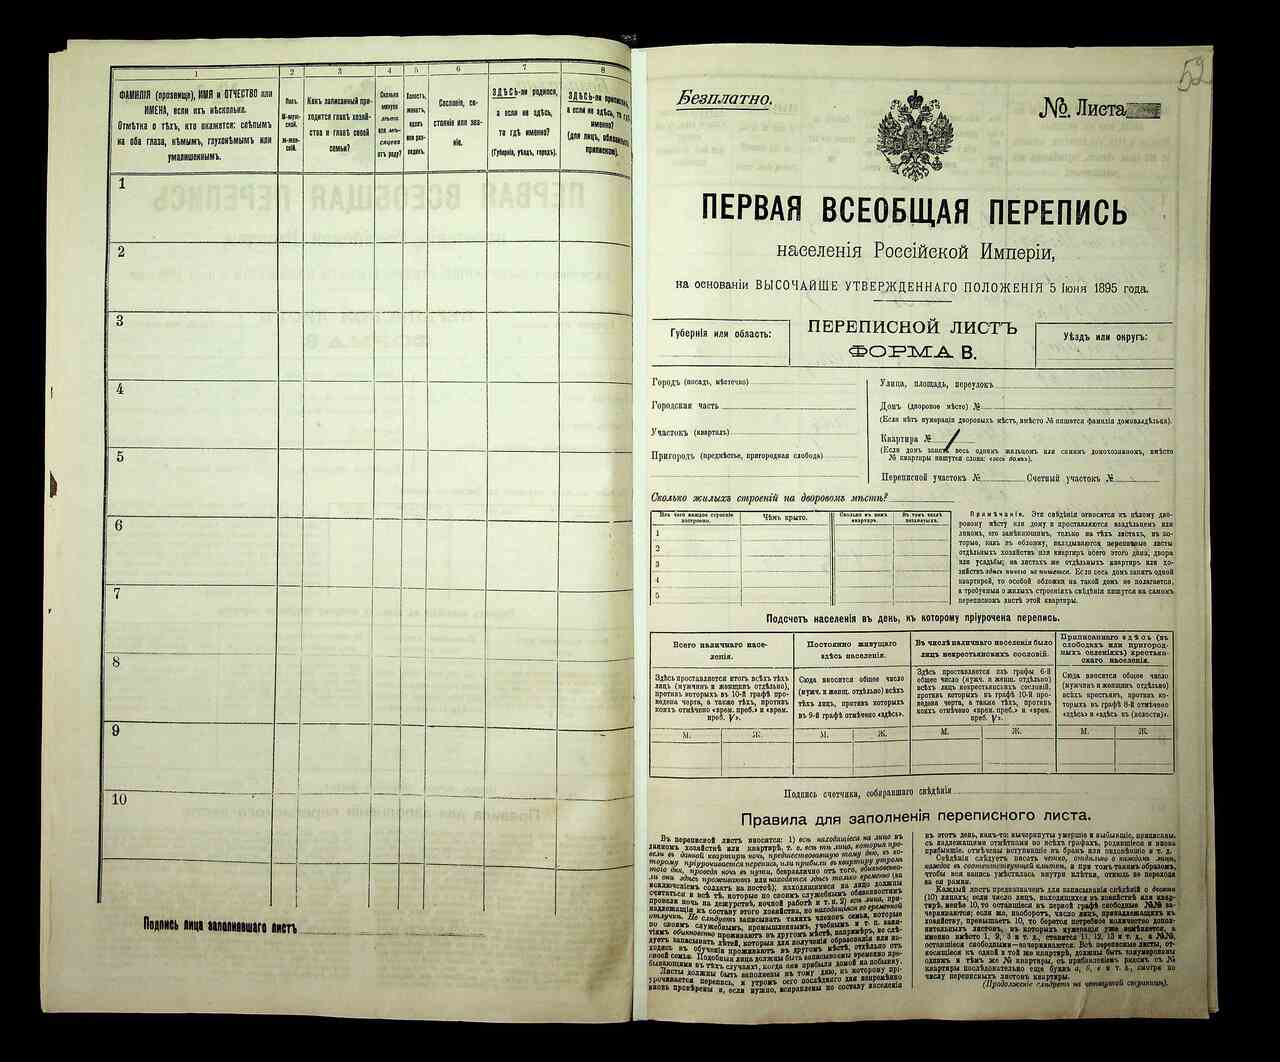 1 2 3 4 5 6 7 8
ФАМИЛІЯ (прозвище), ИМЯ и ОТЧЕСТВО или
ИМЕНА, если ихъ нѣсколько.
Отмѣтка о тѣхъ, кто окажется: слѣпымъ
на оба глаза, нѣмымъ, глухонѣмымъ или
умалишеннымъ.
Полъ.
М-муж-
ской.
Ж-жен-
скій.
Какъ записанный при-
ходится главѣ хозяй-
ства и главѣ своей
семьи?
Сколько
минуло
лѣтъ
или мѣ-
сяцевъ
отъ роду?
Холостъ,
женатъ,
вдовъ
или раз-
веденъ.
Сословіе, со-
стояніе или зва-
ніе.
ЗДѢСЬ-ли родился,
а если не здѣсь,
то гдѣ именно?
(Губернія, уѣздъ, городъ).
ЗДѢСЬ-ли приписанъ,
а если не здѣсь, то гдѣ
именно?
(для лицъ, обязанныхъ
припискою).
1
2
3
4
5
6
7
8
9
10
Подпись лица заполнившаго листъ
52
Безплатно.
№ Листа
ПЕРВАЯ ВСЕОБЩАЯ ПЕРЕПИСЬ
населенія Россійской Имперіи,
на основаніи ВЫСОЧАЙШЕ УТВЕРЖДЕННАГО ПОЛОЖЕНІЯ 5 Іюня 1895 года.
Губернія или область:
ПЕРЕПИСНОЙ ЛИСТЪ
ФОРМА В.
Уѣздъ или округъ:
Городъ (посадъ, мѣстечко)
Городская часть
Участокъ (кварталъ)
Пригородъ (предмѣстье, пригородная слобода)
Улица, площадь, переулокъ
Домъ (дворовое мѣсто) №
(Если нѣтъ нумераціи дворовыхъ мѣстъ, вмѣсто № пишется фамилія домовладѣльца).
Квартира № /
(Если домъ занятъ весь однимъ жильцомъ или самимъ домохозяиномъ, вмѣсто
№ квартиры пишутся слова: «весь домъ»).
Переписной участокъ № Счетный участокъ №
Сколько жилыхъ строеній на дворовомъ мѣстѣ?
Изъ чего каждое строеніе
построено.
Чѣмъ крыто.
Сколько въ немъ
квартиръ.
Въ томъ числѣ
незанятыхъ.
1
2
3
4
5
Примѣчаніе. Эти свѣдѣнія относятся къ цѣлому дво-
ровому мѣсту или дому и проставляются владѣльцемъ или
лицомъ, его замѣняющимъ, только на тѣхъ листахъ, въ ко-
торые, какъ въ обложку, вкладываются переписные листы
отдѣльныхъ хозяйствъ или квартиръ всего этого дома, двора
или усадьбы; на листахъ же отдѣльныхъ квартиръ или хо-
зяйствъ здѣсь ничего не пишется. Если весь домъ занятъ одной
квартирой, то особой обложки на такой домъ не полагается,
а требуемыя о жилыхъ строеніяхъ свѣдѣнія пишутся на самомъ
переписномъ листѣ этой квартиры.
Подсчетъ населенія въ день, къ которому пріурочена перепись.
Всего наличнаго насе-
ленія.
Постоянно живущаго
здѣсь населенія.
Въ числѣ наличнаго населенія было
лицъ некрестьянскихъ сословій.
Приписаннаго здѣсь (въ
слободахъ или пригород-
ныхъ селеніяхъ) крестьян-
скаго населенія.
Здѣсь проставляется итогъ всѣхъ тѣхъ
лицъ (мужчинъ и женщинъ отдѣльно),
противъ которыхъ въ 10-й графѣ про-
ведена черта, а также тѣхъ, противъ
коихъ отмѣчено «врем. преб.» и «врем.
преб. V».
Сюда вносится общее число
(мужч. и женщ. отдѣльно) всѣхъ
тѣхъ лицъ, противъ которыхъ
въ 9-й графѣ отмѣчено «здѣсь».
Здѣсь проставляется изъ графы 6-й
общее число (мужч. и женщ. отдѣльно)
всѣхъ лицъ некрестьянскихъ сословій,
противъ которыхъ въ графѣ 10-й про-
ведена черта, а также тѣхъ, противъ
коихъ отмѣчено «врем. преб.» и «врем.
преб. V».
Сюда вносится общее число
(мужчинъ и женщинъ отдѣльно)
всѣхъ крестьянъ, противъ ко-
торыхъ въ графѣ 8-й отмѣчено
«здѣсь» и «здѣсь въ (волости)».
М. Ж. М. Ж. М. Ж. М. Ж.
Подпись счетчика, собиравшаго свѣдѣнія
Правила для заполненія переписного листа.
Въ переписной листъ вносятся: 1) всѣ находящіеся на лицо въ
данномъ хозяйствѣ или квартирѣ, т. е. всѣ тѣ лица, которыя про-
вели въ данной квартирѣ ночь, предшествовавшую тому дню, къ ко-
торому пріурочивается перепись, или прибыли въ квартиру утромъ
того дня, проведя ночь въ пути, безразлично отъ того, обыкновен-
но ли они здѣсь проживаютъ или находятся здѣсь только временно (за
исключеніемъ солдатъ на постоѣ); находящимися на лицо должны
считаться и всѣ тѣ, которые по своимъ служебнымъ обязанностямъ
провели ночь на дежурствѣ, ночной работѣ и т. п. 2) всѣ лица, при-
надлежащія къ составу этого хозяйства, но находящіяся во временной
отлучкѣ. Не слѣдуетъ записывать такихъ членовъ семьи, которые
по своимъ служебнымъ, промышленнымъ, учебнымъ и т. п. заня-
тіямъ обыкновенно проживаютъ въ другомъ мѣстѣ, напримѣръ, не слѣ-
дуетъ записывать дѣтей, которыя для полученія образованія или на-
ходясь въ обученіи проживаютъ въ другомъ мѣстѣ, отдѣльно отъ
своей семьи. Подобныя лица должны быть записываемы временно пре-
бывающими въ тѣхъ случаяхъ, когда они прибыли домой на побывку.
Листы должны быть заполнены къ тому дню, къ которому прі-
урочивается перепись, и утромъ сего послѣдняго дня непремѣнно
вновь провѣрены и, если нужно, исправлены по составу населенія
въ этотъ день, какъ-то: вычеркнуты умершіе и выбывшіе, приписаны,
съ надлежащими отмѣтками во всѣхъ графахъ, родившіеся и вновь
прибывшіе, отмѣчены вступившіе въ бракъ или овдовѣвшіе и т. д.
Свѣдѣнія слѣдуетъ писать четко, отдѣльно о каждомъ лицѣ,
каждое въ соотвѣтствующей клѣткѣ, и при томъ такимъ образомъ,
чтобы вся запись умѣсталась внутри клѣтки, отнюдь не переходя
за ея рамки.
Каждый листъ предназначенъ для записыванія свѣдѣній о десяти
(10) лицахъ; если число лицъ, находящихся въ хозяйствѣ или квар-
тирѣ, менѣе 10, то оставшіеся въ первой графѣ свободные №№ за-
черкиваются; если же, наоборотъ, число лицъ, принадлежащихъ къ
хозяйству, превышаетъ 10, то берется потребное количество допол-
нительныхъ листовъ, въ которыхъ нумерація уже измѣняется, а
именно вмѣсто 1, 2, 3 и т. д., ставится 11, 12, 13 и т. д., а №№,
оставшіеся свободными—зачеркиваются. Всѣ переписные листы, от-
носящіеся къ одной и той же квартирѣ, должны быть занумерованы
однимъ и тѣмъ же № квартиры, съ прибавленіемъ рядомъ съ №
квартиры послѣдовательно еще буквъ а, б, в и т. д., смотря по
числу переписныхъ листовъ квартиры.
(Продолженіе слѣдуетъ на четвертой страницѣ).